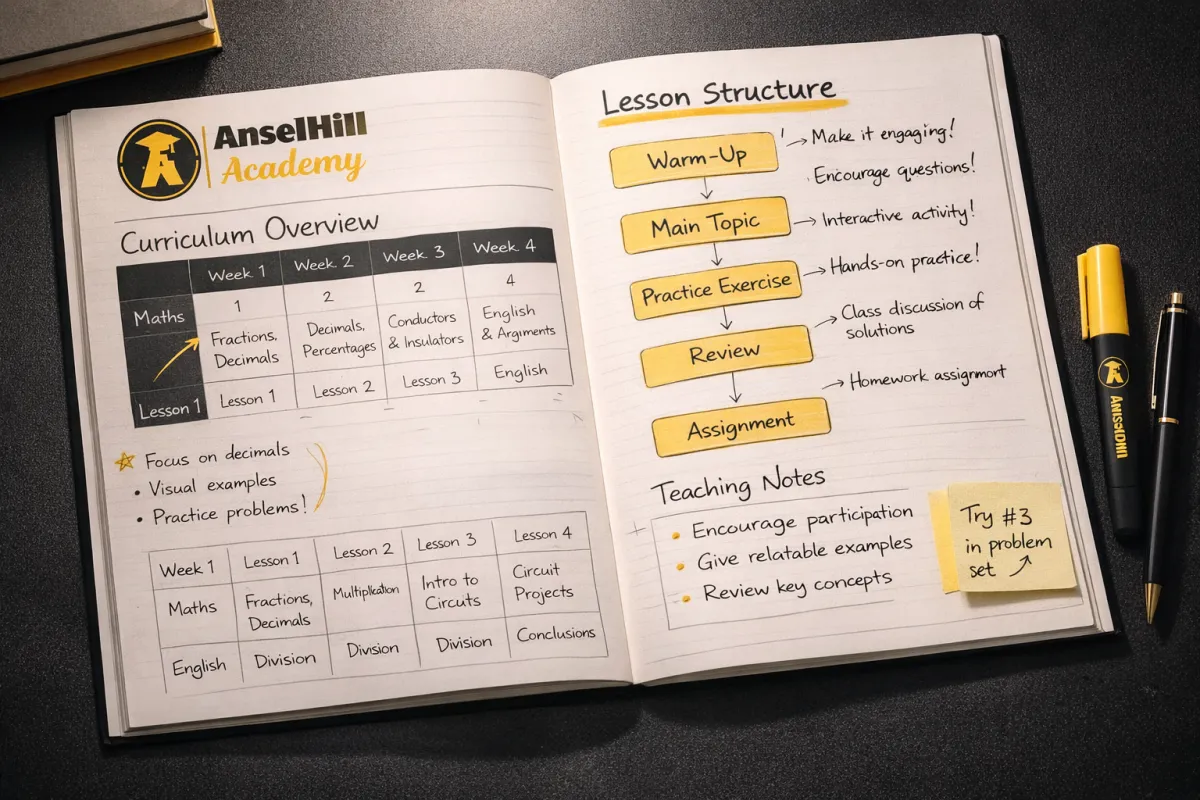 AnselHill
Academy
Curriculum Overview
Week 1 Week 2 Week 3 Week 4
Maths 1 2 2 4
Fractions, Decimals, Conductors English
Decimals Percentages & Insulators & Argıments
Lesson 1 Lesson 1 Lesson 2 Lesson 3 English
Focus on decimals
• Visual examples
• Practice problems!
Week 1 Lesson 1 Lesson 2 Lesson 3 Lesson 4
Maths Fractions, Multiplication Intro to Circuit
Decimals Circuts Projects
English Division Division Division Conclusions
Lesson Structure
Warm-Up → Make it engaging!
Encourage questions!
Main Topic → Interactive activity!
Practice Exercise → Hands-on practice!
Review → Class discussion of
solutions
→ Homework assignmort
Assignment
Teaching Notes
• Encourage participation
• Give relatable examples
• Review key concepts
Try #3
in problem
set